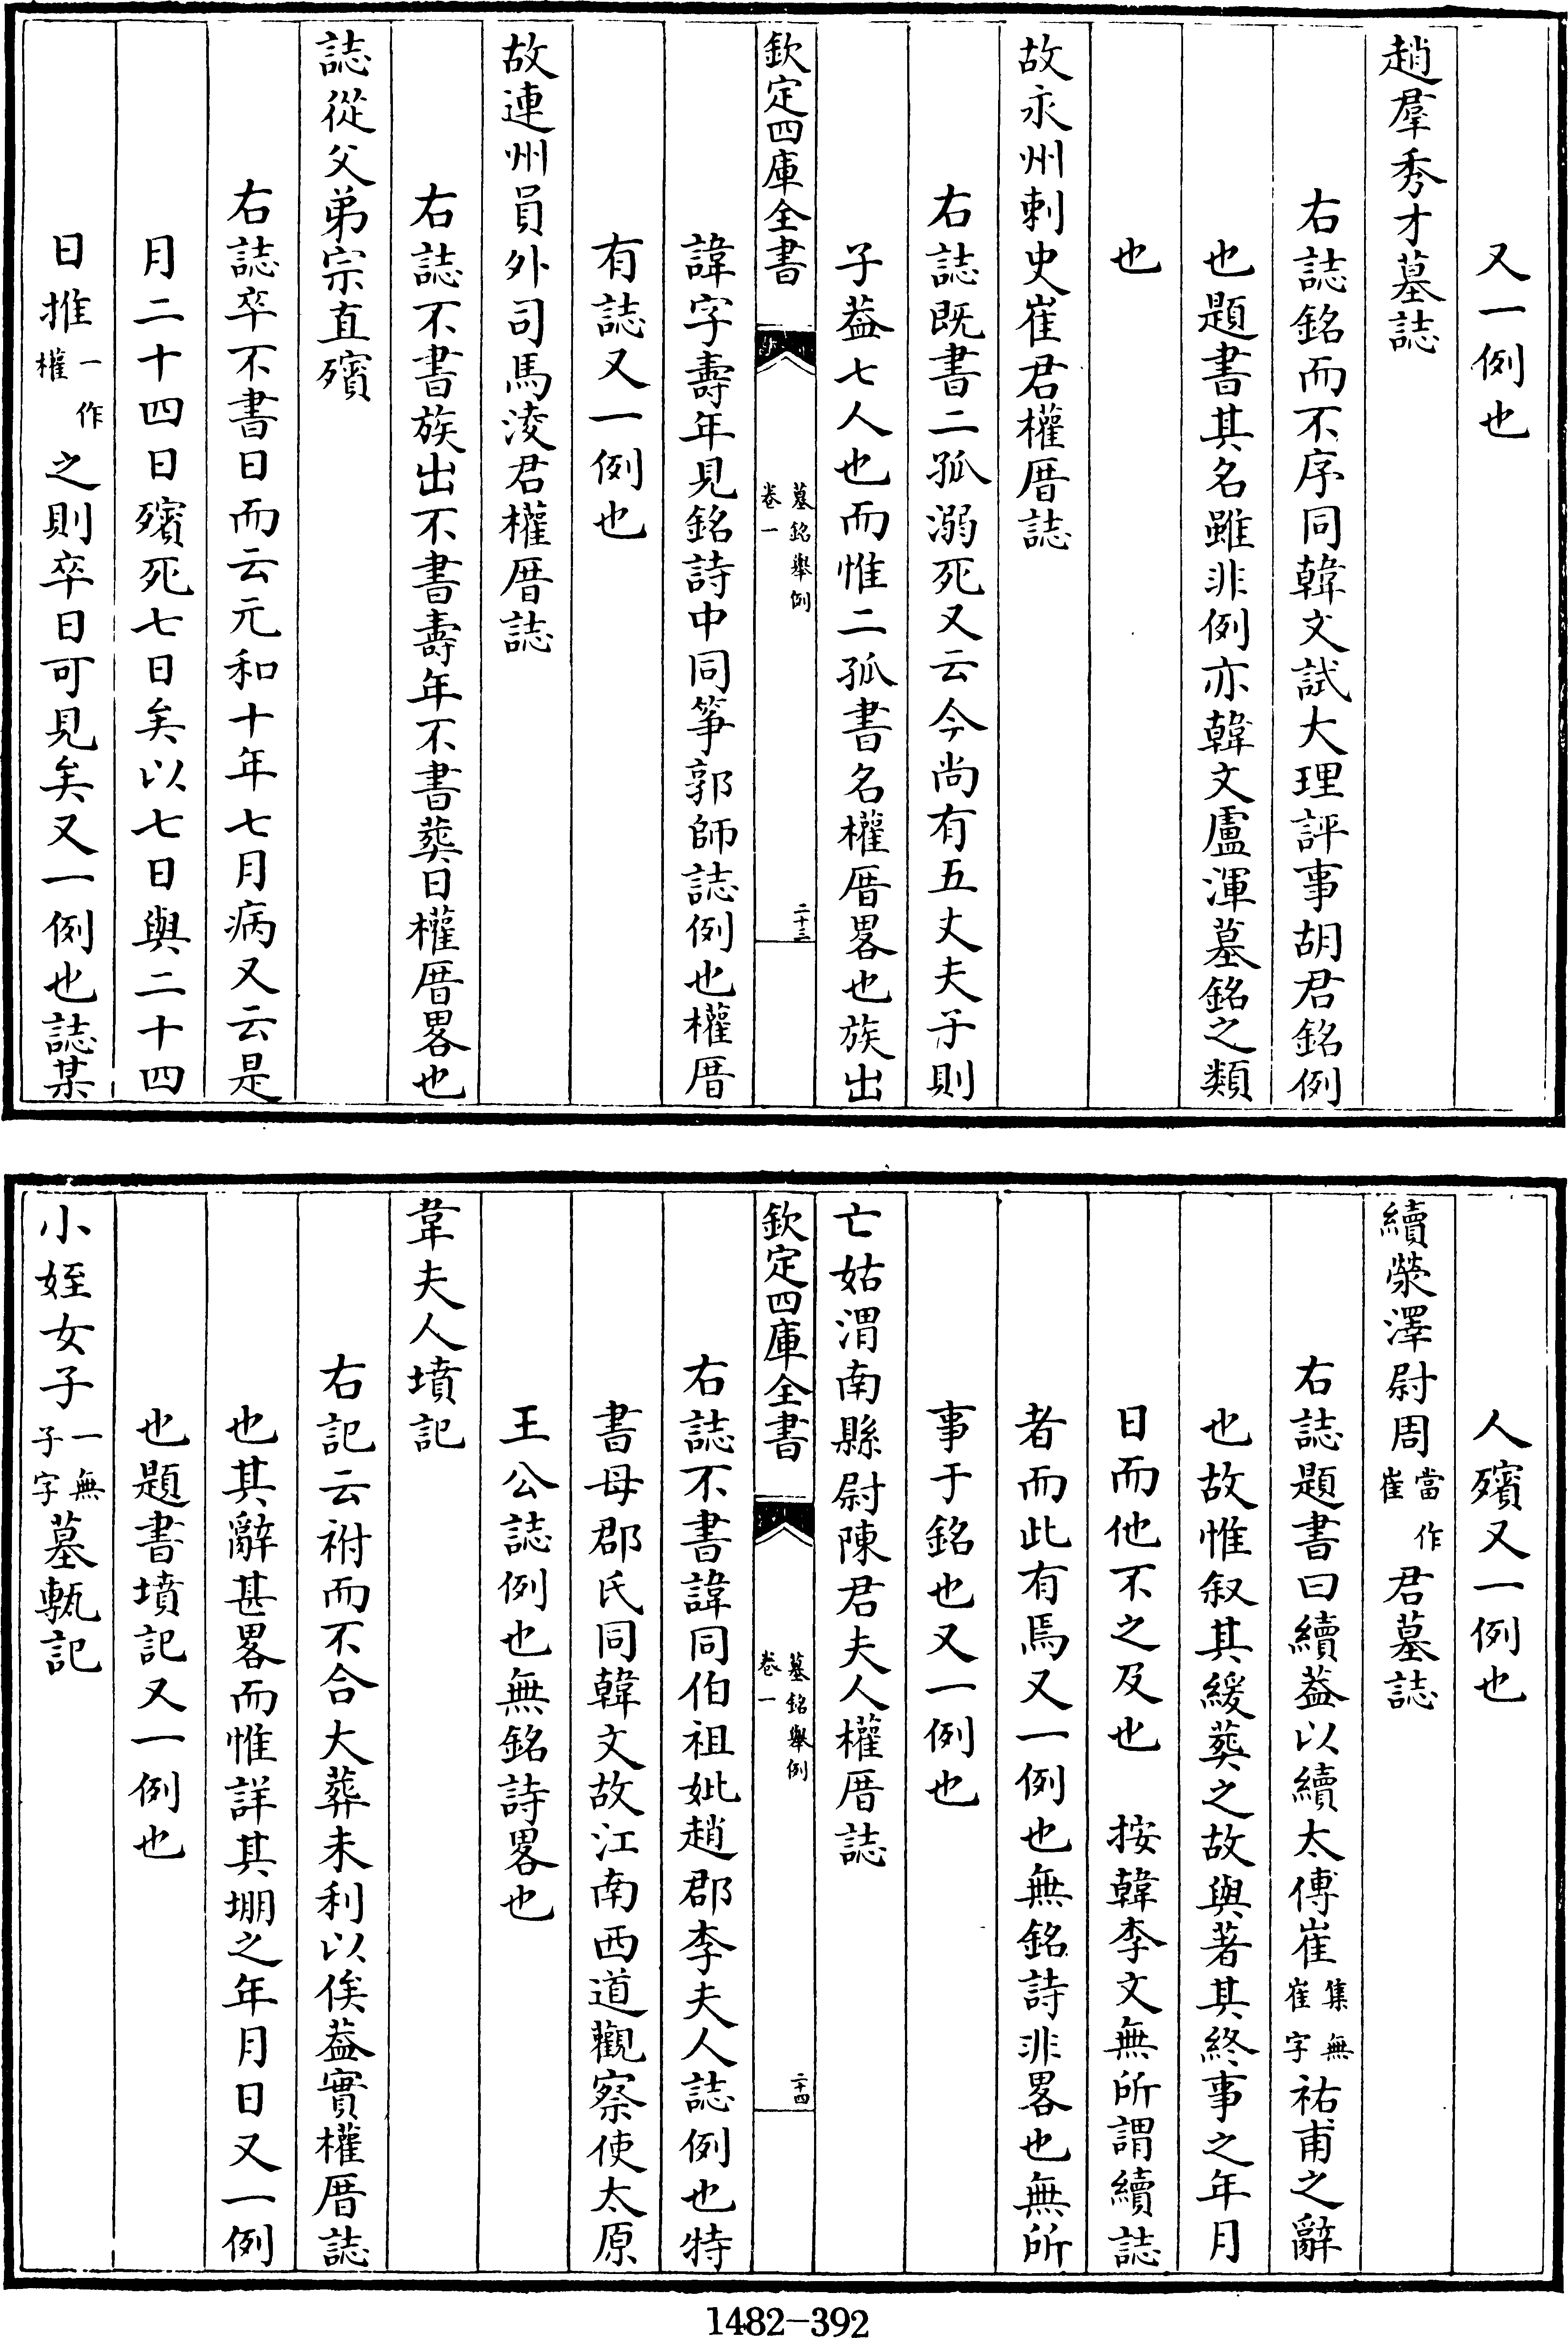 又一例也
趙羣秀才墓誌
右誌銘而不序同韓文試大理評事胡君銘例
也題書其名雖非例亦韓文盧渾墓銘之類
也
故永州刺史崔君權厝誌
右誌既書二孤溺死又云今尚有五丈夫子則
子葢七人也而惟二孤書名權厝畧也族出
欽定四庫全書
墓銘舉例
卷一
二十三
諱字壽年見銘詩中同筝郭師誌例也權厝
有誌又一例也
故連州員外司馬淩君權厝誌
右誌不書族出不書壽年不書葬日權厝畧也
誌從父弟宗直殯
右誌卒不書日而云元和十年七月病又云是
月二十四日殯死七日矣以七日與二十四
日推一作權之則卒日可見矣又一例也誌某
人殯又一例也
續滎澤尉周當作崔君墓誌
右誌題書曰續葢以續太傅崔集無崔字祐甫之辭
也故惟叙其緩葬之故與著其終事之年月
日而他不之及也 按韓李文無所謂續誌
者而此有焉又一例也無銘詩非畧也無所
事于銘也又一例也
亡姑渭南縣尉陳君夫人權厝誌
欽定四庫全書
墓銘舉例
卷一
二十四
右誌不書諱同伯祖妣趙郡李夫人誌例也特
書母郡氏同韓文故江南西道觀察使太原
王公誌例也無銘詩畧也
韋夫人墳記
右記云祔而不合大葬未利以俟葢實權厝誌
也其辭甚畧而惟詳其堋之年月日又一例
也題書墳記又一例也
小姪女子一無子字墓甎記
1482-392